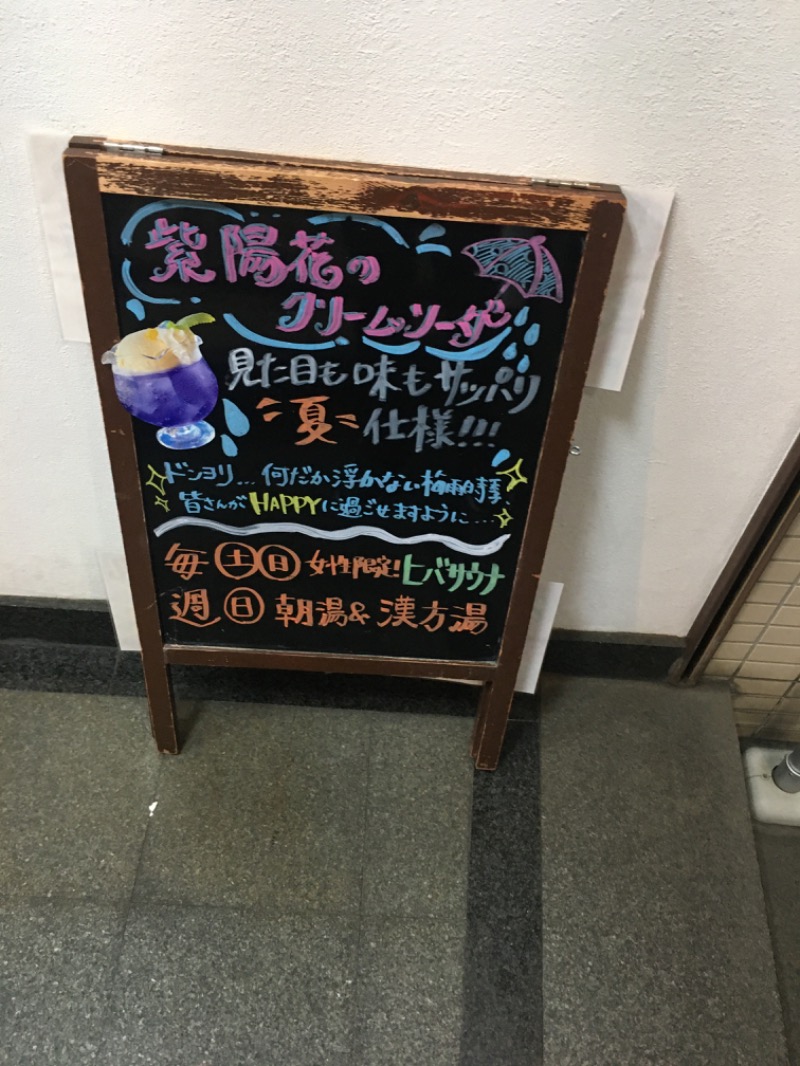 紫陽花の
クリームソーダ
見た目も味もサッパリ
夏仕様!!!
ドンヨリ...何だか浮かない梅雨時季、
皆さんがHAPPYに過ごせますように...
毎週 土日 女性限定!ヒバサウナ
日 朝湯&漢方湯